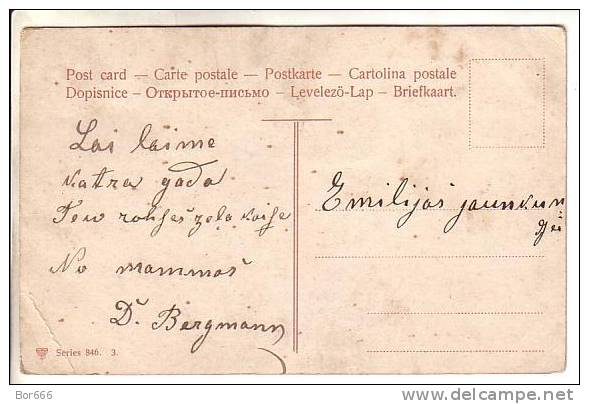 Post card — Carte postale — Postkarte — Cartolina postale
Dopisnice — Открытое-письмо — Levelezö-Lap — Briefkaart.
Lai laime
katra gada
Tew
No mammas
D. Bergmann
Emilijas jaunkun
dzei
Series 846. 3.
Bor666
delcampe.net